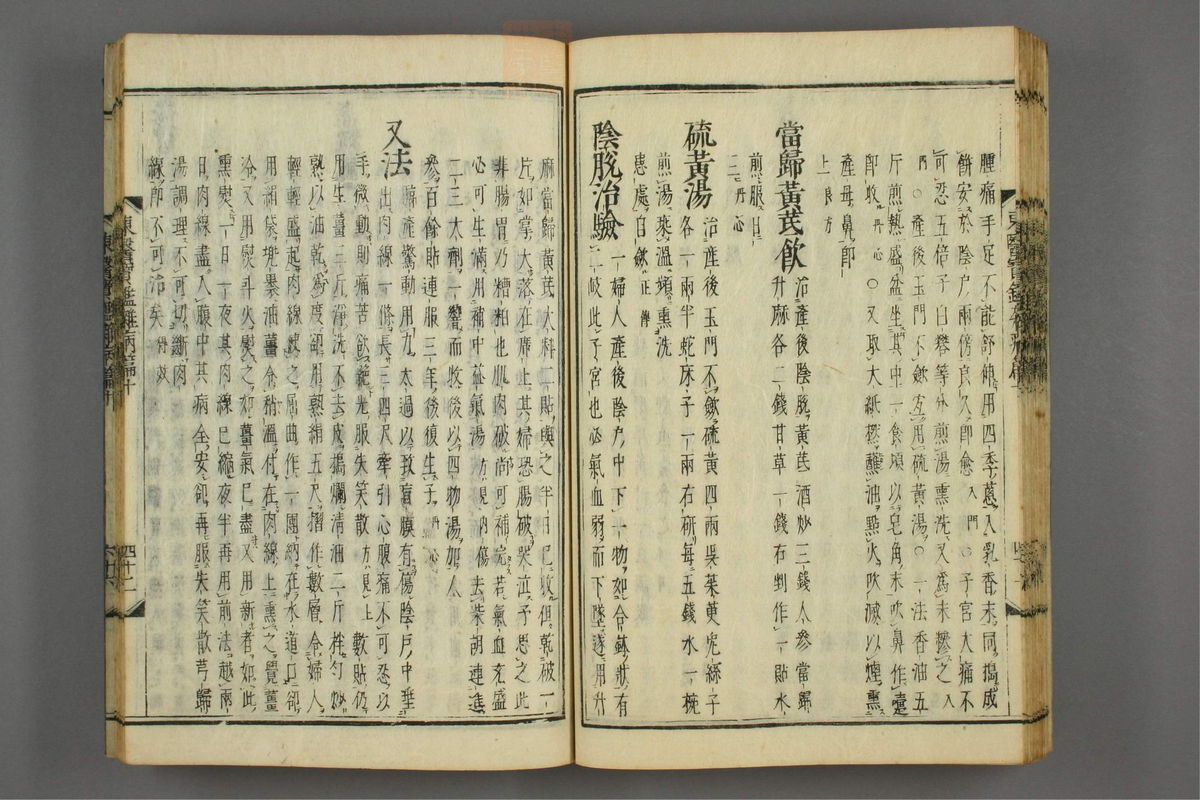 腫痛手足不能舒伸用四季蔥入乳香末同搗成
餠安於陰戶兩傍良久卽愈入門○子宮大痛不
可忍五倍子白礬等分煎湯熏洗又爲末摻之入
門○產後玉門不歛宜用硫黃湯○一法香油五
斤煎熱盛盆坐其中一食頃以皂角末吹鼻作嚔
卽收丹心○又取大紙撚蘸油點火吹滅以煙熏
產母鼻卽
上良方
當歸黃芪飮治產後陰脫黃芪酒炒三錢人參當歸
升麻各二錢甘草一錢右剉作一貼水
煎服日
三丹心
硫黃湯治產後玉門不歛硫黃四兩吳茱萸兔絲子
各一兩半蛇床子一兩右硏每五錢水一椀
煎湯乘溫頻熏洗
患處自歛正傳
陰脫治驗一婦人產後陰戶中下一物如合鉢狀有
二岐此子宮也必氣血弱而下墜遂用升
麻當歸黃芪大料二貼與之半日已收但乾破一
片如掌大落在席上其婦恐腸破哭泣予思之此
非腸胃乃糟粕也肌肉破尙可補完若氣血充盛
必可生滿用補中益氣湯方見內傷去柴胡連進
二三大劑一響而收後以四物湯加人
參百餘貼連服三年後復生子丹心
又法臨產驚動用力太過以致肓膜有傷陰戶中垂
出肉線一條長三四尺牽引心腹痛不可忍以
手微動則痛苦欲絕先服失笑散方見上數貼仍
用生薑三斤淨洗不去皮搗爛淸油二斤拌勻炒
熟以油乾爲度却用熟絹五尺摺作數層令婦人
輕輕盛起肉線使之屈曲作一團納在水道口却
用絹袋兜裹油薑令稍溫付在肉線上熏之覺薑
冷又用熨斗火熨之如薑氣已盡又用新者如此
熏熨一日一夜其肉線已縮夜半再用前法越兩
日肉線盡入腹中其病全安却再服失笑散芎歸
湯調理不可切斷肉
線卽不可治矣得效
東醫寶鑑雜病篇十
四十二